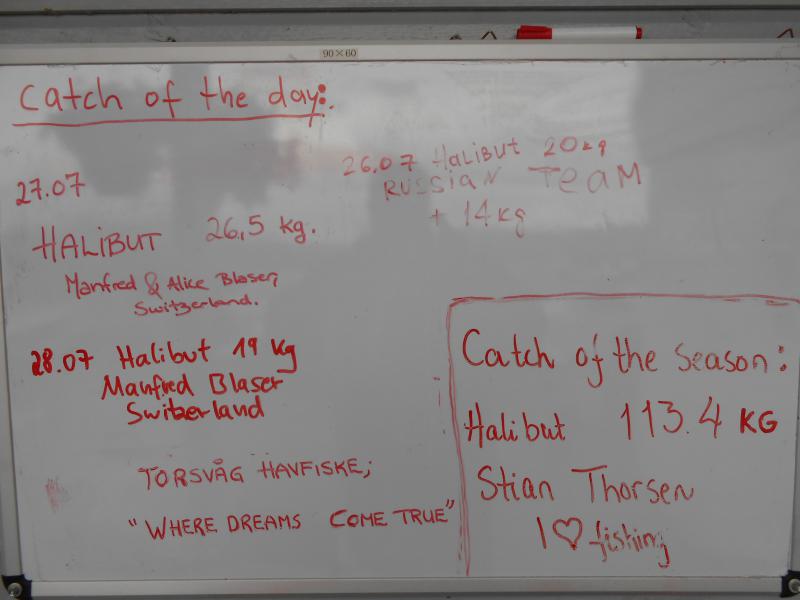 90×60
Catch of the day:
27.07
HALIBUT 26,5 kg.
Manfred & Alice Blaser,
Switzerland.
26.07 HALIBUT 20kg
RUSSIAN TEAM
+ 14kg
28.07 Halibut 19 kg
Manfred Blaser
Switzerland
TORSVÅG HAVFISKE;
"WHERE DREAMS COME TRUE"
Catch of the season:
Halibut 113.4 KG
Stian Thorsen
I ♡ fishing